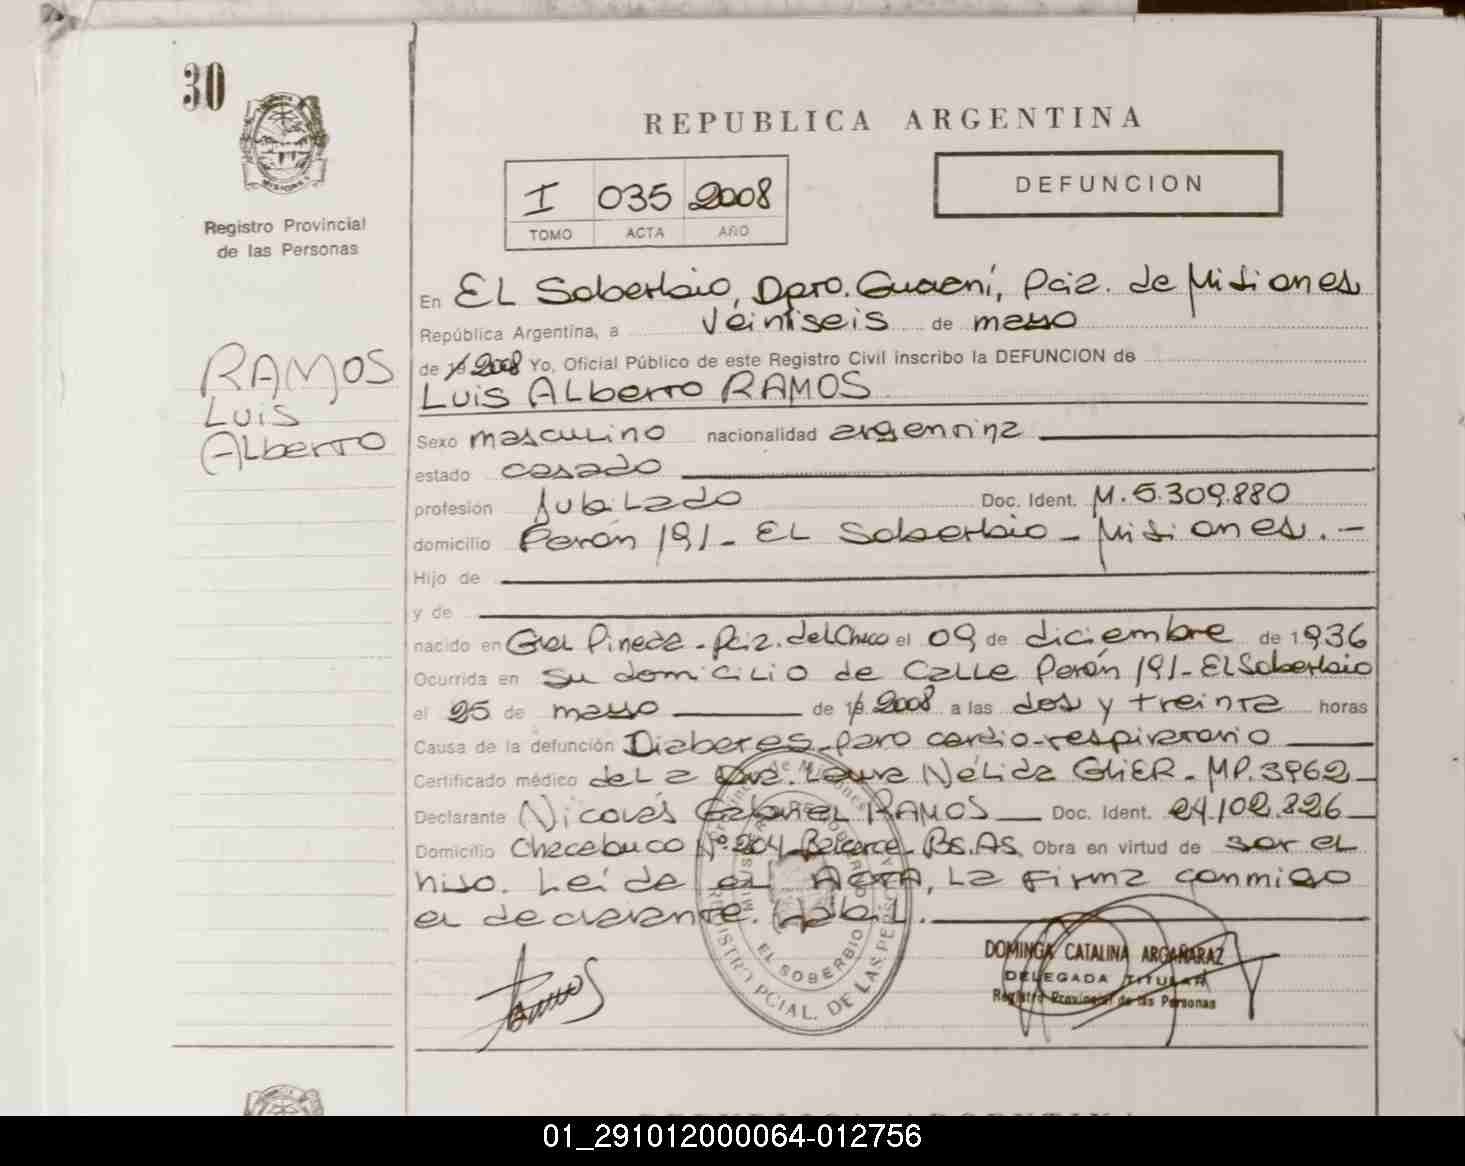 30
MISIONES
Registro Provincial
de las Personas
RAMOS
Luis
Alberto
REPUBLICA ARGENTINA
I 035 2008
TOMO ACTA AÑO
DEFUNCION
En EL Soberbio, Dpto. Guaraní, Pcia. de Misiones
República Argentina, a veintiseis de mayo
de 19 2008 Yo, Oficial Público de este Registro Civil inscribo la DEFUNCION de
Luis Alberto RAMOS
Sexo masculino nacionalidad argentina
estado casado
profesión Jubilado Doc. Ident. M. 5.309.880
domicilio Perón 191 - EL Soberbio - Misiones. -
Hijo de
y de
nacido en Gral Pinedo - Pcia. del Chaco el 09 de diciembre de 1936
Ocurrida en su domicilio de Calle Perón 191 - EL Soberbio
el 25 de mayo de 19 2008 a las dos y treinta horas
Causa de la defunción Diabetes - paro cardio-respiratorio
Certificado médico de La Dra. Laura Nélida GLIER - MP. 3962
Declarante Nicolás Gabriel RAMOS Doc. Ident. 24.102.826
Domicilio Chacabuco Nº 204 - Balcarce - Bs. As. Obra en virtud de ser el
hijo. Leída el ACTA, La firma conmigo
el declarante. Habil.
Ramos
Provincia de Misiones
EL SOBERBIO
REGISTRO PCIAL. DE LAS PERSONAS
DOMINGA CATALINA ARGAÑARAZ
DELEGADA TITULAR
Registro Provincial de las Personas
01_291012000064-012756